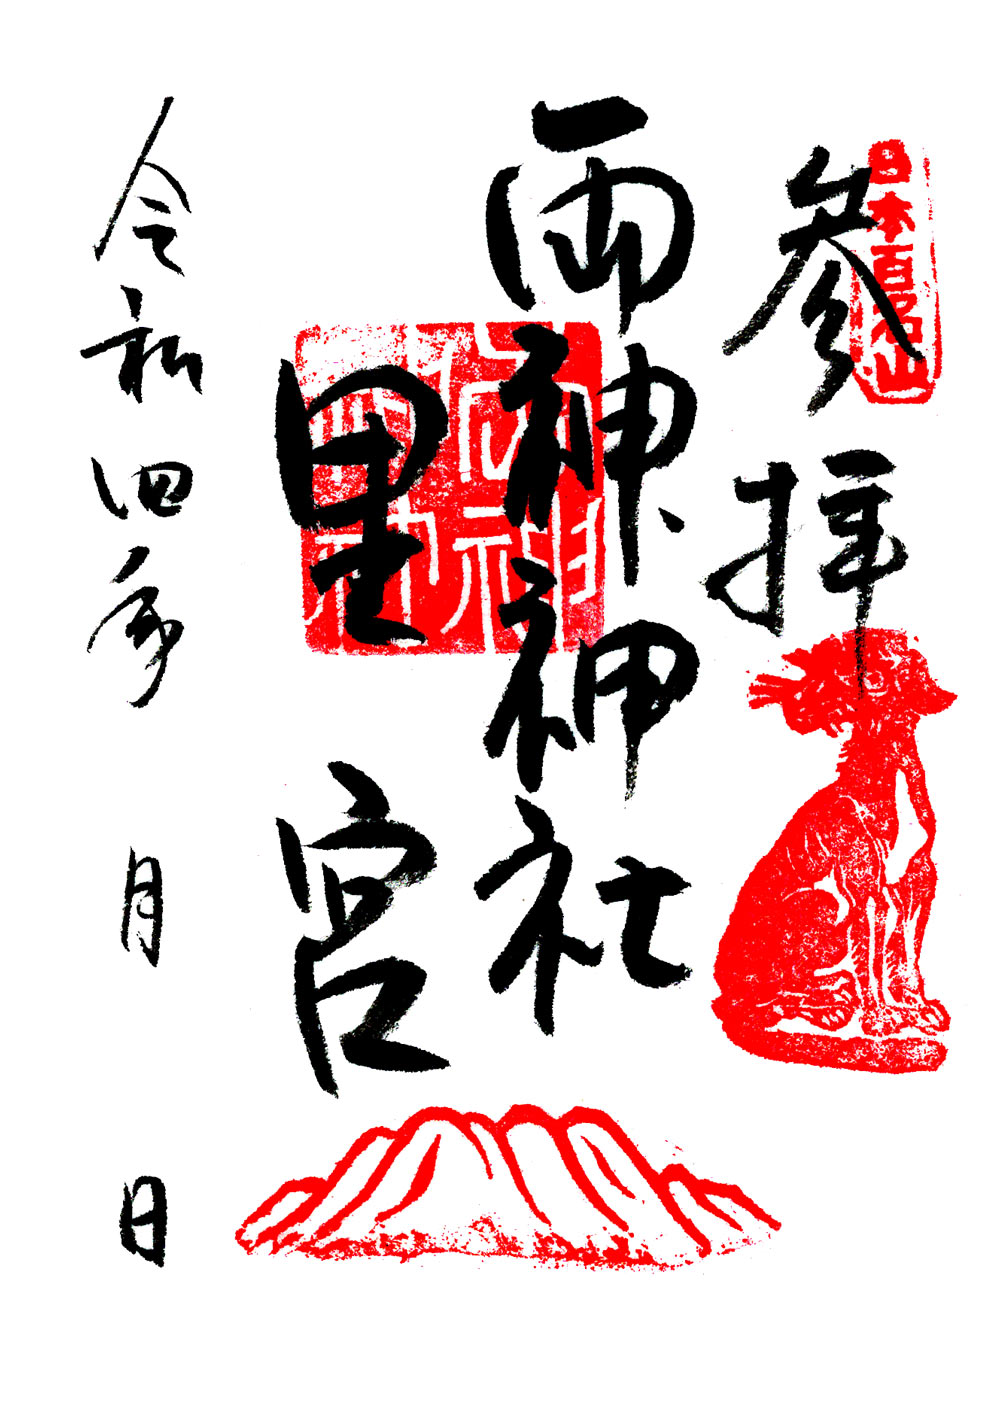 日本百名山
参拝
両神神社
里宮
令和四年 月 日